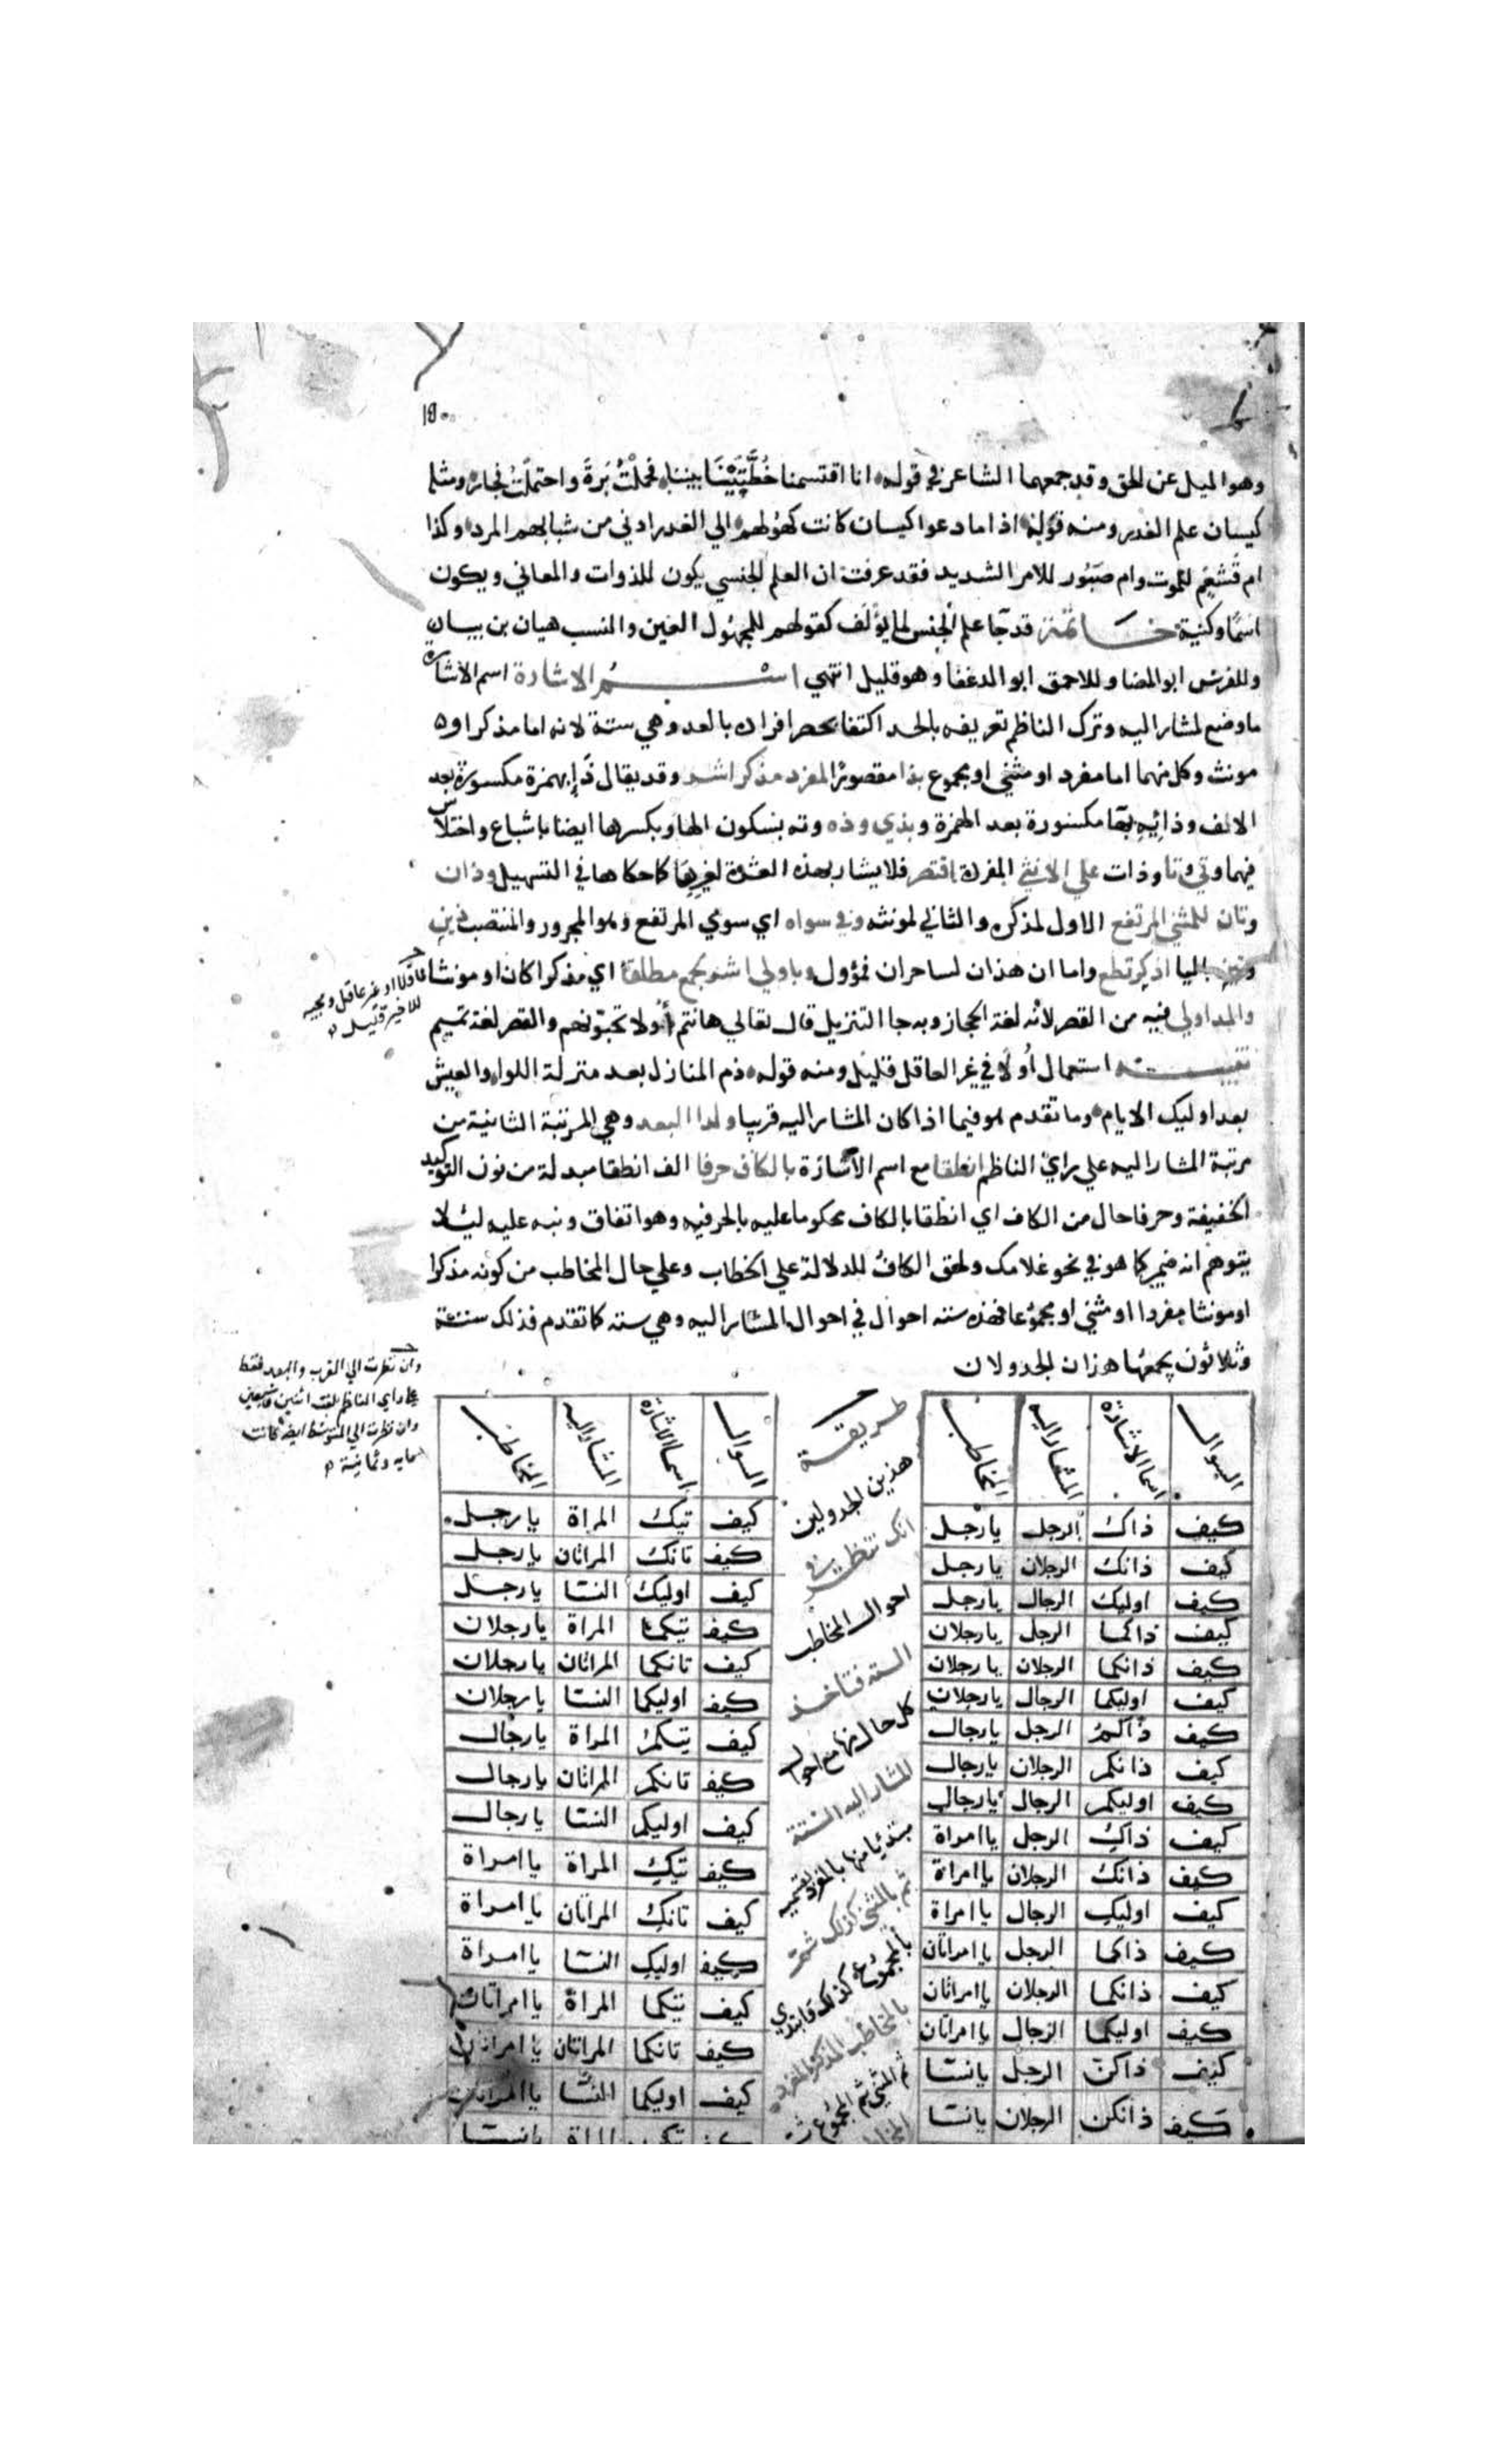 وهو الميل عن الحق وقد جمعهما الشاعر في قوله انا اقتسمنا خُطَّتَيْنَا بيننا فحملتُ بَرةَ واحتملتَ فجار ومثلـ
كيسان علم الغدر ومنه قوله اذا ما دعوا كيسان كانت كهولهم الي الغدر ادني من شبابهم المرد وكذا
ام قَشْعَم للموت وام صَبُور للامر الشديد فقد عرفت ان العلم الجنسي يكون للذوات والمعاني ويكون
اسمًا وكنية خـاتمة قد جا علم الجنس لما يؤلف كقولهم للمجهول العين والنسب هيان بن بيان
وللفرس ابو المضا وللاحمق ابو الدغفا وهو قليل انتهي اسـم الاشارة اسم الاشارة
ما وضع لمشار اليه وترك الناظم تعريفه بالحد اكتفا بحصر افراده بالعد وهي ستة لانه اما مذكر او
مونث وكل منهما اما مفرد او مثني او مجموع بذا مقصورًا لمفرد مذكر اشـر وقد يقال ذَاءِ بهمزة مكسورة بعد
الالف وذائِهِ بها مكسورة بعد الهمزة وبذي وذه وته بسكون الها وبكسرها ايضا باشباع واختلاس
فيهما وتي وتا وذات علي الانثي المفردة اقتصر فلا يشار بهذه العشرة لغيرها كما حكاها في التسهيل وذان
وتان للمثني المرتفع الاول لمذكره والثاني لمونثه وفي سواه اي سوي المرتفع وهو المجرور والمنتصب ذين
وتين باليا اذكر تطع واما ان هذان لساحران فمؤول وباولي اشر لجمع مطلقا اي مذكرا كان او مونثا
عاقلا او غير عاقل ومجيه
للاخير قليل
والمد اولي فيه من القصر لانه لغة الحجاز وبه جا التنزيل قال تعالي هانتم أُولا تحبونهم والقصر لغة تميم
تنبيـه استعمال أُولا في غير العاقل قليل ومنه قوله ذم المنازل بعد منزلة اللوا والعيش
بعد اوليك الايام وما تقدم هو فيما اذا كان المشار اليه قريبا ولدا البعد وهي المرتبة الثانية من
مرتبة المشار اليه علي راي الناظم انطقا مع اسم الاشارة بالكاف حرفا الف انطقا مبدلة من نون التوكيد
الخفيفة وحرفا حال من الكاف اي انطقا بالكاف محكوما عليه بالحرفيه وهو اتفاق ونبه عليه ليلا
يتوهم انه ضمير كما هو في نحو غلامك ولحق الكاف للدلالة علي الخطاب وعلي حال المخاطب من كونه مذكرا
او مونثا مفردا او مثني او مجموعا فهذه سته احوال في احوال المشار اليه وهي سته كما تقدم فذلك ستة
وثلاثون يجمعها هذان الجدولان
وان نظرت الي القرب والبعد فقط
علي راي الناظم بلغت اثنين وسبعين
وان نظرت الي المتوسط ايضا كانت
مايه وثمانية
السوال اسما الاشارة المشار اليه المخاطب
كيف ذاك الرجل يا رجل
كيف ذانك الرجلان يا رجل
كيف اوليك الرجال يا رجل
كيف ذاكما الرجل يا رجلان
كيف ذانكما الرجلان يا رجلان
كيف اوليكما الرجال يا رجلان
كيف ذاكم الرجل يا رجال
كيف ذانكم الرجلان يا رجال
كيف اوليكم الرجال يا رجال
كيف ذاكِ الرجل يا امراة
كيف ذانك الرجلان يا امراة
كيف اوليكِ الرجال يا امراة
كيف ذاكما الرجل يا امراتان
كيف ذانكما الرجلان يا امراتان
كيف اوليكما الرجال يا امراتان
كيف ذاكن الرجل يا نسا
كيف ذانكن الرجلان يا نسا
طريقة
هذين الجدولين
انك تنظر في
احوال المخاطب
السته فتاخذ
كل حال منها مع احوال
المشار اليه الستة
مبتدئا منها بالمفرد بقسميه
ثم بالمثني كذلك ثم
بالمجموع كذلك فابتدي
بالمخاطب المذكر المفرد
ثم المثني ثم المجموع
السوال اسما الاشارة المشار اليه المخاطب
كيف تيك المراة يا رجل
كيف تانك المراتان يا رجل
كيف اوليك النسا يا رجل
كيف تيكما المراة يا رجلان
كيف تانكما المراتان يا رجلان
كيف اوليكما النسا يا رجلان
كيف تيكم المراة يا رجال
كيف تانكم المراتان يا رجال
كيف اوليكم النسا يا رجال
كيف تيكِ المراة يا امراة
كيف تانكِ المراتان يا امراة
كيف اوليكِ النسا يا امراة
كيف تيكما المراة يا امراتان
كيف تانكما المراتان يا امراتان
كيف اوليكما النسا يا امراتان